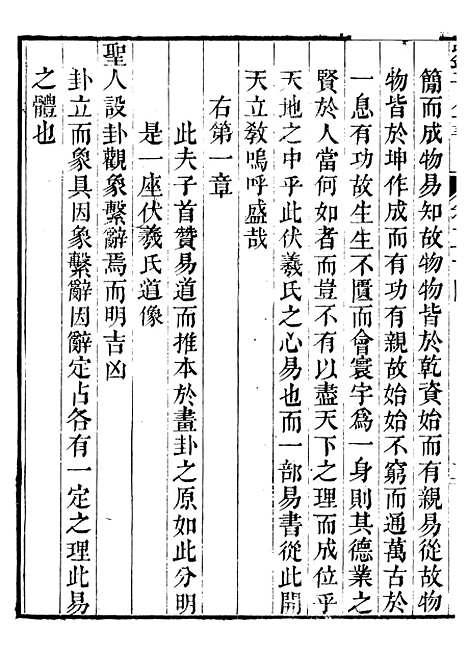 簡而成物易知故物物皆於乾資始而有親易從故物
物皆於坤作成而有功有親故始始不窮而通萬古於
一息有功故生生不匱而會寰宇為一身則其德業之
賢於人當何如者而豈不有以盡天下之理而成位乎
天地之中乎此伏羲氏之心易也而一部易書從此開
天立教嗚呼盛哉
右第一章
此夫子首贊易道而推本於畫卦之原如此分明
是一座伏羲氏道像
聖人設卦觀象繫辭焉而明吉凶
卦立而象具因象繫辭因辭定占各有一定之理此易
之體也